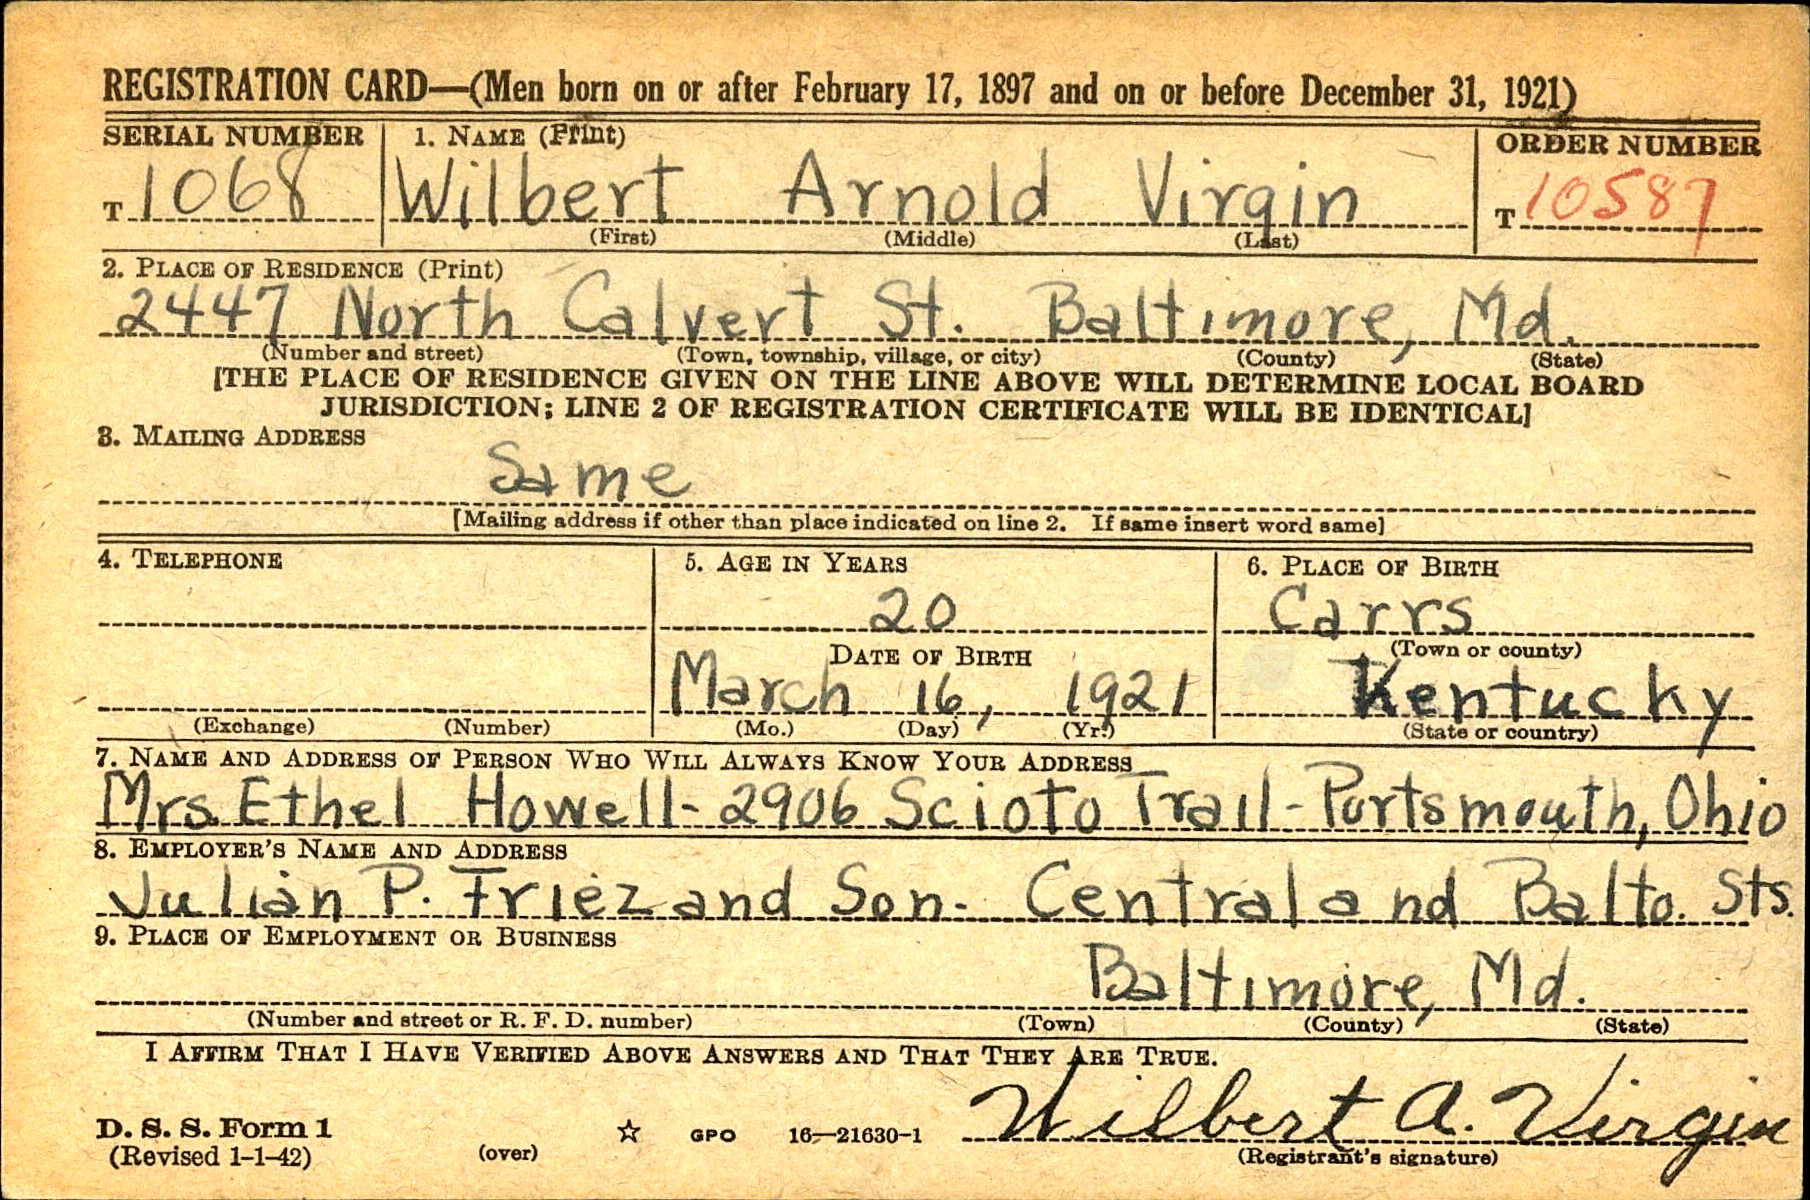 REGISTRATION CARD—(Men born on or after February 17, 1897 and on or before December 31, 1921)
SERIAL NUMBER 1. NAME (Print) ORDER NUMBER
T 1068 Wilbert Arnold Virgin T 10587
(First) (Middle) (Last)
2. PLACE OF RESIDENCE (Print)
2447 North Calvert St. Baltimore, Md.
(Number and street) (Town, township, village, or city) (County) (State)
[THE PLACE OF RESIDENCE GIVEN ON THE LINE ABOVE WILL DETERMINE LOCAL BOARD
JURISDICTION; LINE 2 OF REGISTRATION CERTIFICATE WILL BE IDENTICAL]
3. MAILING ADDRESS
Same
[Mailing address if other than place indicated on line 2. If same insert word same]
4. TELEPHONE 5. AGE IN YEARS 6. PLACE OF BIRTH
20 Carrs
DATE OF BIRTH (Town or county)
March 16, 1921 Kentucky
(Exchange) (Number) (Mo.) (Day) (Yr.) (State or country)
7. NAME AND ADDRESS OF PERSON WHO WILL ALWAYS KNOW YOUR ADDRESS
Mrs. Ethel Howell - 2906 Scioto Trail - Portsmouth, Ohio
8. EMPLOYER'S NAME AND ADDRESS
Julian P. Friez and Son - Central and Balto. Sts.
9. PLACE OF EMPLOYMENT OR BUSINESS
Baltimore, Md.
(Number and street or R. F. D. number) (Town) (County) (State)
I AFFIRM THAT I HAVE VERIFIED ABOVE ANSWERS AND THAT THEY ARE TRUE.
Wilbert A. Virgin
D. S. S. Form 1
(Revised 1-1-42) (over) ☆ GPO 16—21630-1 (Registrant's signature)